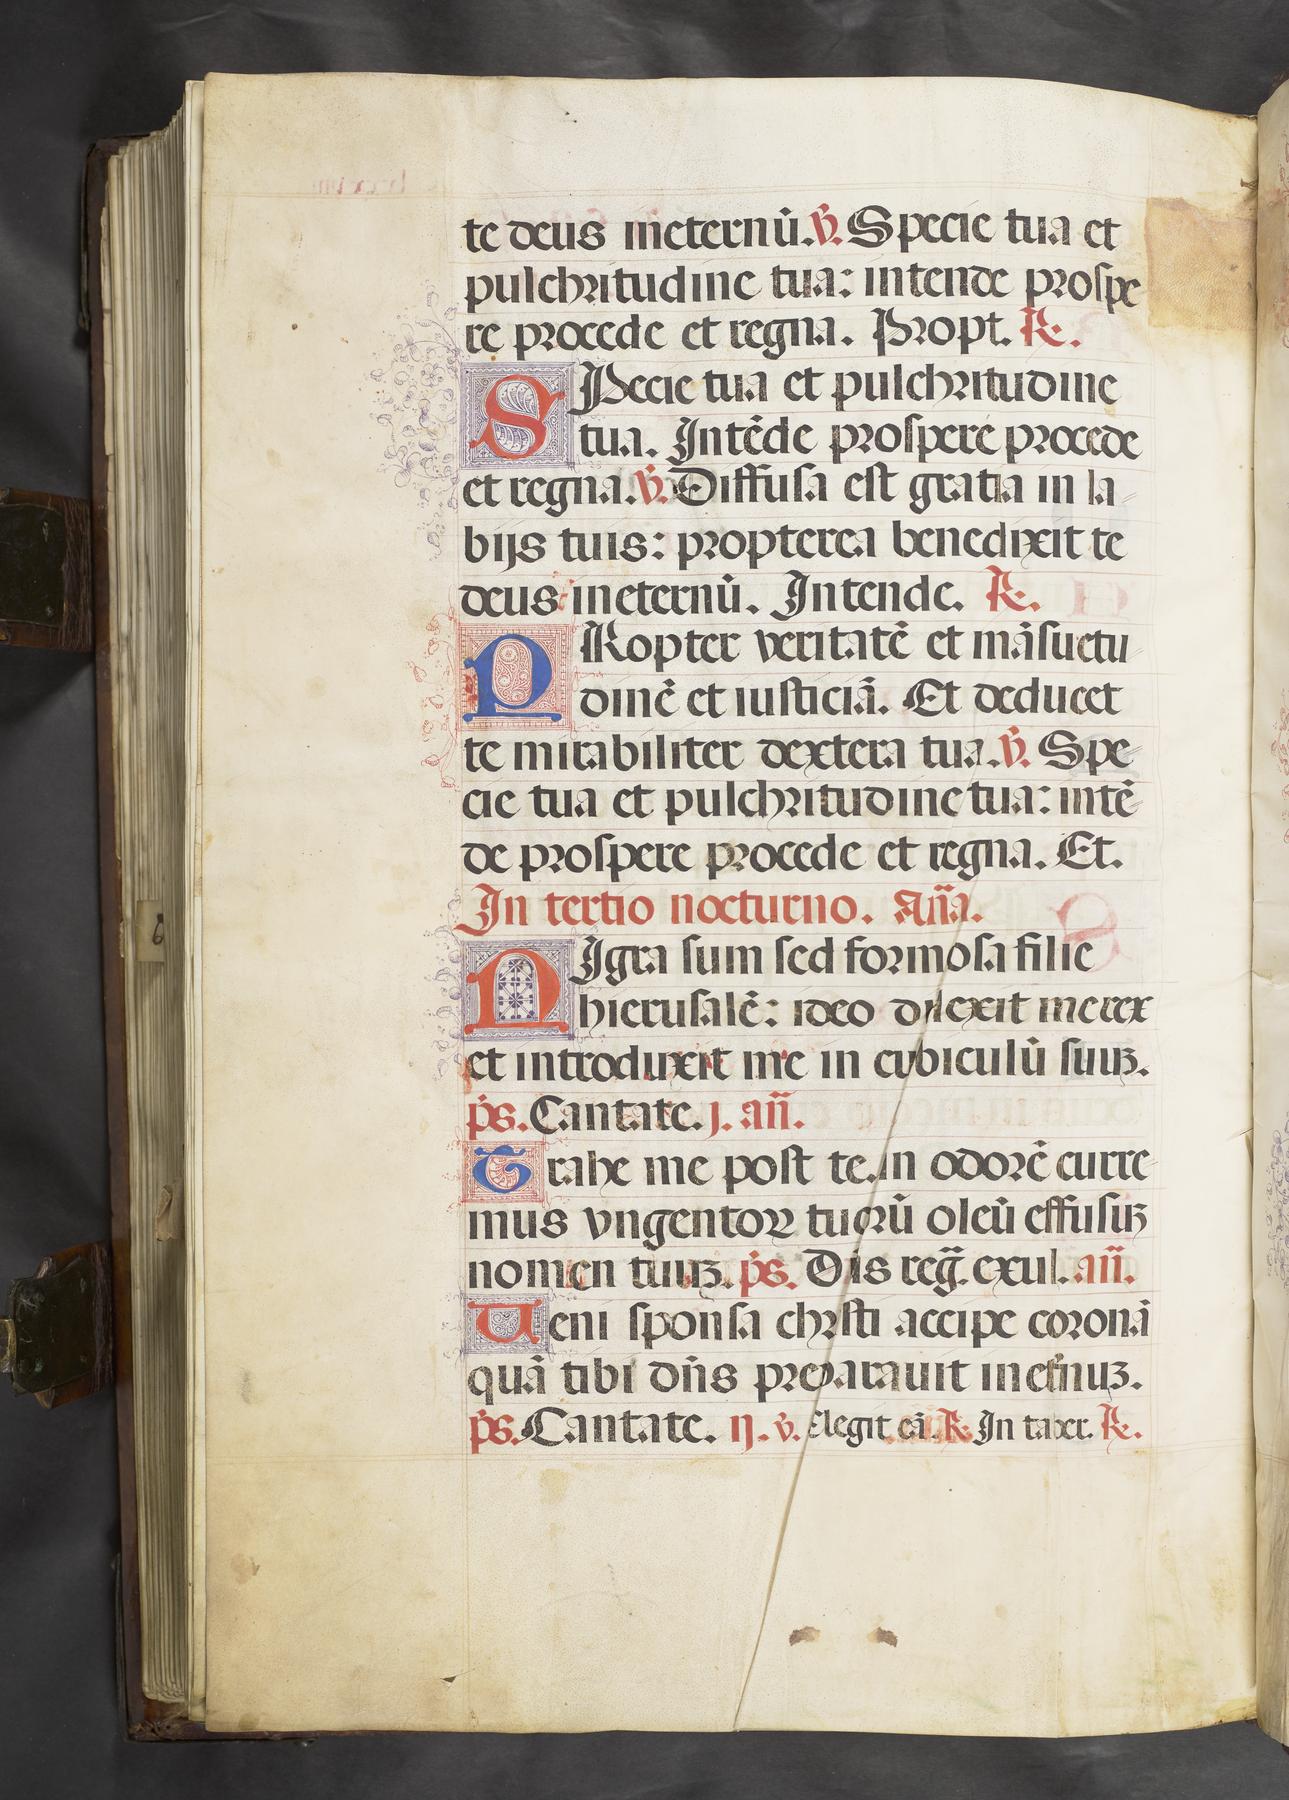 te deus ineternū. ℣. Specie tua et
pulchritudine tua: intende prospe
re procede et regna. Propt. ℟.
SPecie tua et pulchritudine
tua. Intēde prospere procede
et regna. ℣. Diffusa est gratia in la-
bijs tuis: propterea benedixit te
deus ineternū. Intende. ℟.
PRopter veritatē et māsuetu
dinē et iusticiā. Et deducet
te mirabiliter dextera tua. ℣. Spe-
cie tua et pulchritudine tua: intē-
de prospere procede et regna. Et.
In tertio nocturno. Aña.
NIgra sum sed formosa filie
hierusalē: ideo dilexit me rex
et introduxit me in cubiculū suuꝫ.
p̄s. Cantate. j. añ.
Trahe me post te in odorē curre-
mus vngentoꝝ tuorū oleū effusuꝫ
nomen tuuꝫ. p̄s. Dñs reg̃. exul. añ.
Ueni sponsa christi accipe coronā
quā tibi dñs preparauit inet̃nuꝫ.
p̄s. Cantate. ij. ℣. Elegit eā. ℟. In taber. ℟.
6